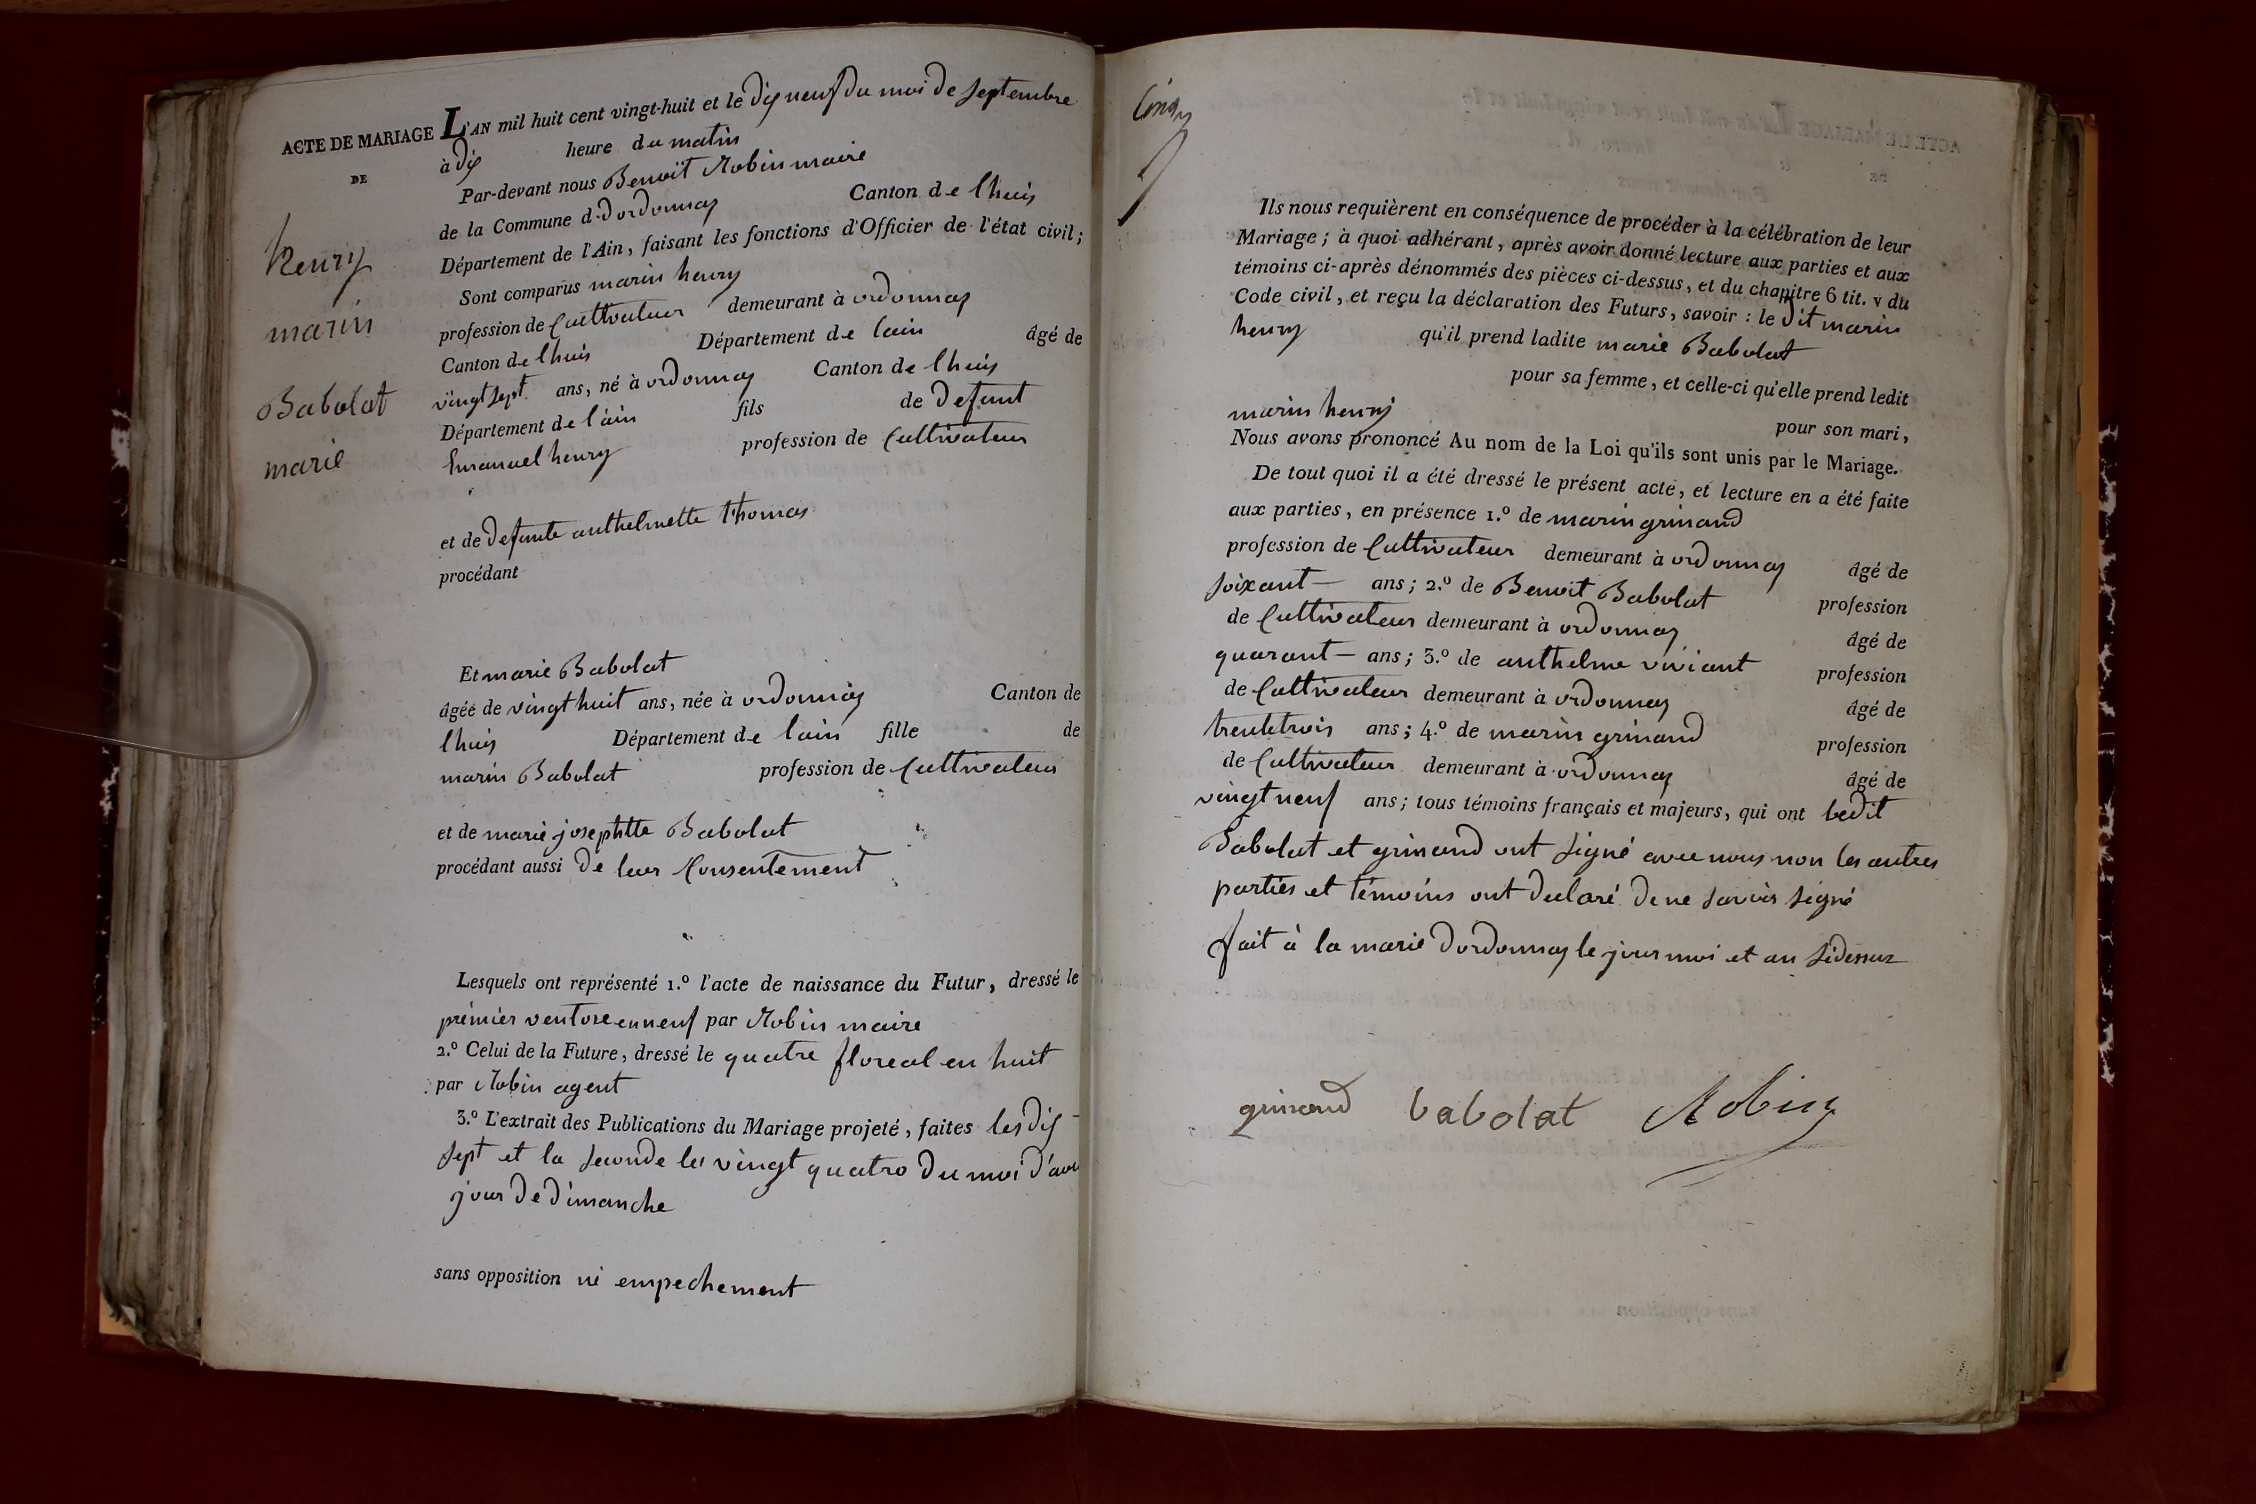 ACTE DE MARIAGE
DE
henry
marin
Babolat
marie
L'AN mil huit cent vingt-huit et le dix neuf du moi de septembre
à dix heure du matin
Par-devant nous Benoît Robin maire
de la Commune d'ordonnas Canton de lhuis
Département de l'Ain, faisant les fonctions d'Officier de l'état civil;
Sont comparus marin henry
profession de Cultivateur demeurant à ordonnas
Canton de lhuis Département de lain âgé de
vingt sept ans, né à ordonnas Canton de lhuis
Département de l'ain fils de defunt
Emanuel henry profession de Cultivateur
et de defunte anthelmette thomas
procédant
Et marie Babolat
âgée de vingt huit ans, née à ordonnas Canton de
lhuis Département de lain fille de
marin Babolat profession de Cultivateur
et de marie josephtte Babolat
procédant aussi de leur Consentement
Lesquels ont représenté 1.º l'acte de naissance du Futur, dressé le
premier ventose en neuf par Robin maire
2.º Celui de la Future, dressé le quatre floreal en huit
par Robin agent
3.º L'extrait des Publications du Mariage projeté, faites les dix
sept et la seconde les vingt quatro du moi d'aou
jour de dimanche
sans opposition ni empechement
Cinq
Ils nous requièrent en conséquence de procéder à la célébration de leur
Mariage; à quoi adhérant, après avoir donné lecture aux parties et aux
témoins ci-après dénommés des pièces ci-dessus, et du chapitre 6 tit. v du
Code civil, et reçu la déclaration des Futurs, savoir : le dit marin
henry qu'il prend ladite marie Babolat
pour sa femme, et celle-ci qu'elle prend ledit
marin henry pour son mari,
Nous avons prononcé Au nom de la Loi qu'ils sont unis par le Mariage.
De tout quoi il a été dressé le présent acte, et lecture en a été faite
aux parties, en présence 1.º de marin grinand
profession de Cultivateur demeurant à ordonnas âgé de
soixant ans; 2.º de Benoit Babolat profession
de Cultivateur demeurant à ordonnas âgé de
quarant ans; 3.º de anthelme viviant profession
de Cultivateur demeurant à ordonnas âgé de
trentetrois ans; 4.º de marin grinand profession
de Cultivateur demeurant à ordonnas âgé de
vingt neuf ans; tous témoins français et majeurs, qui ont ledit
Babolat et grinand ont signé avec nous non les autres
parties et témoins ont declaré de ne savoir signé
fait à la marie dordonnas le jour moi et an sidessus
grinand babolat Robin